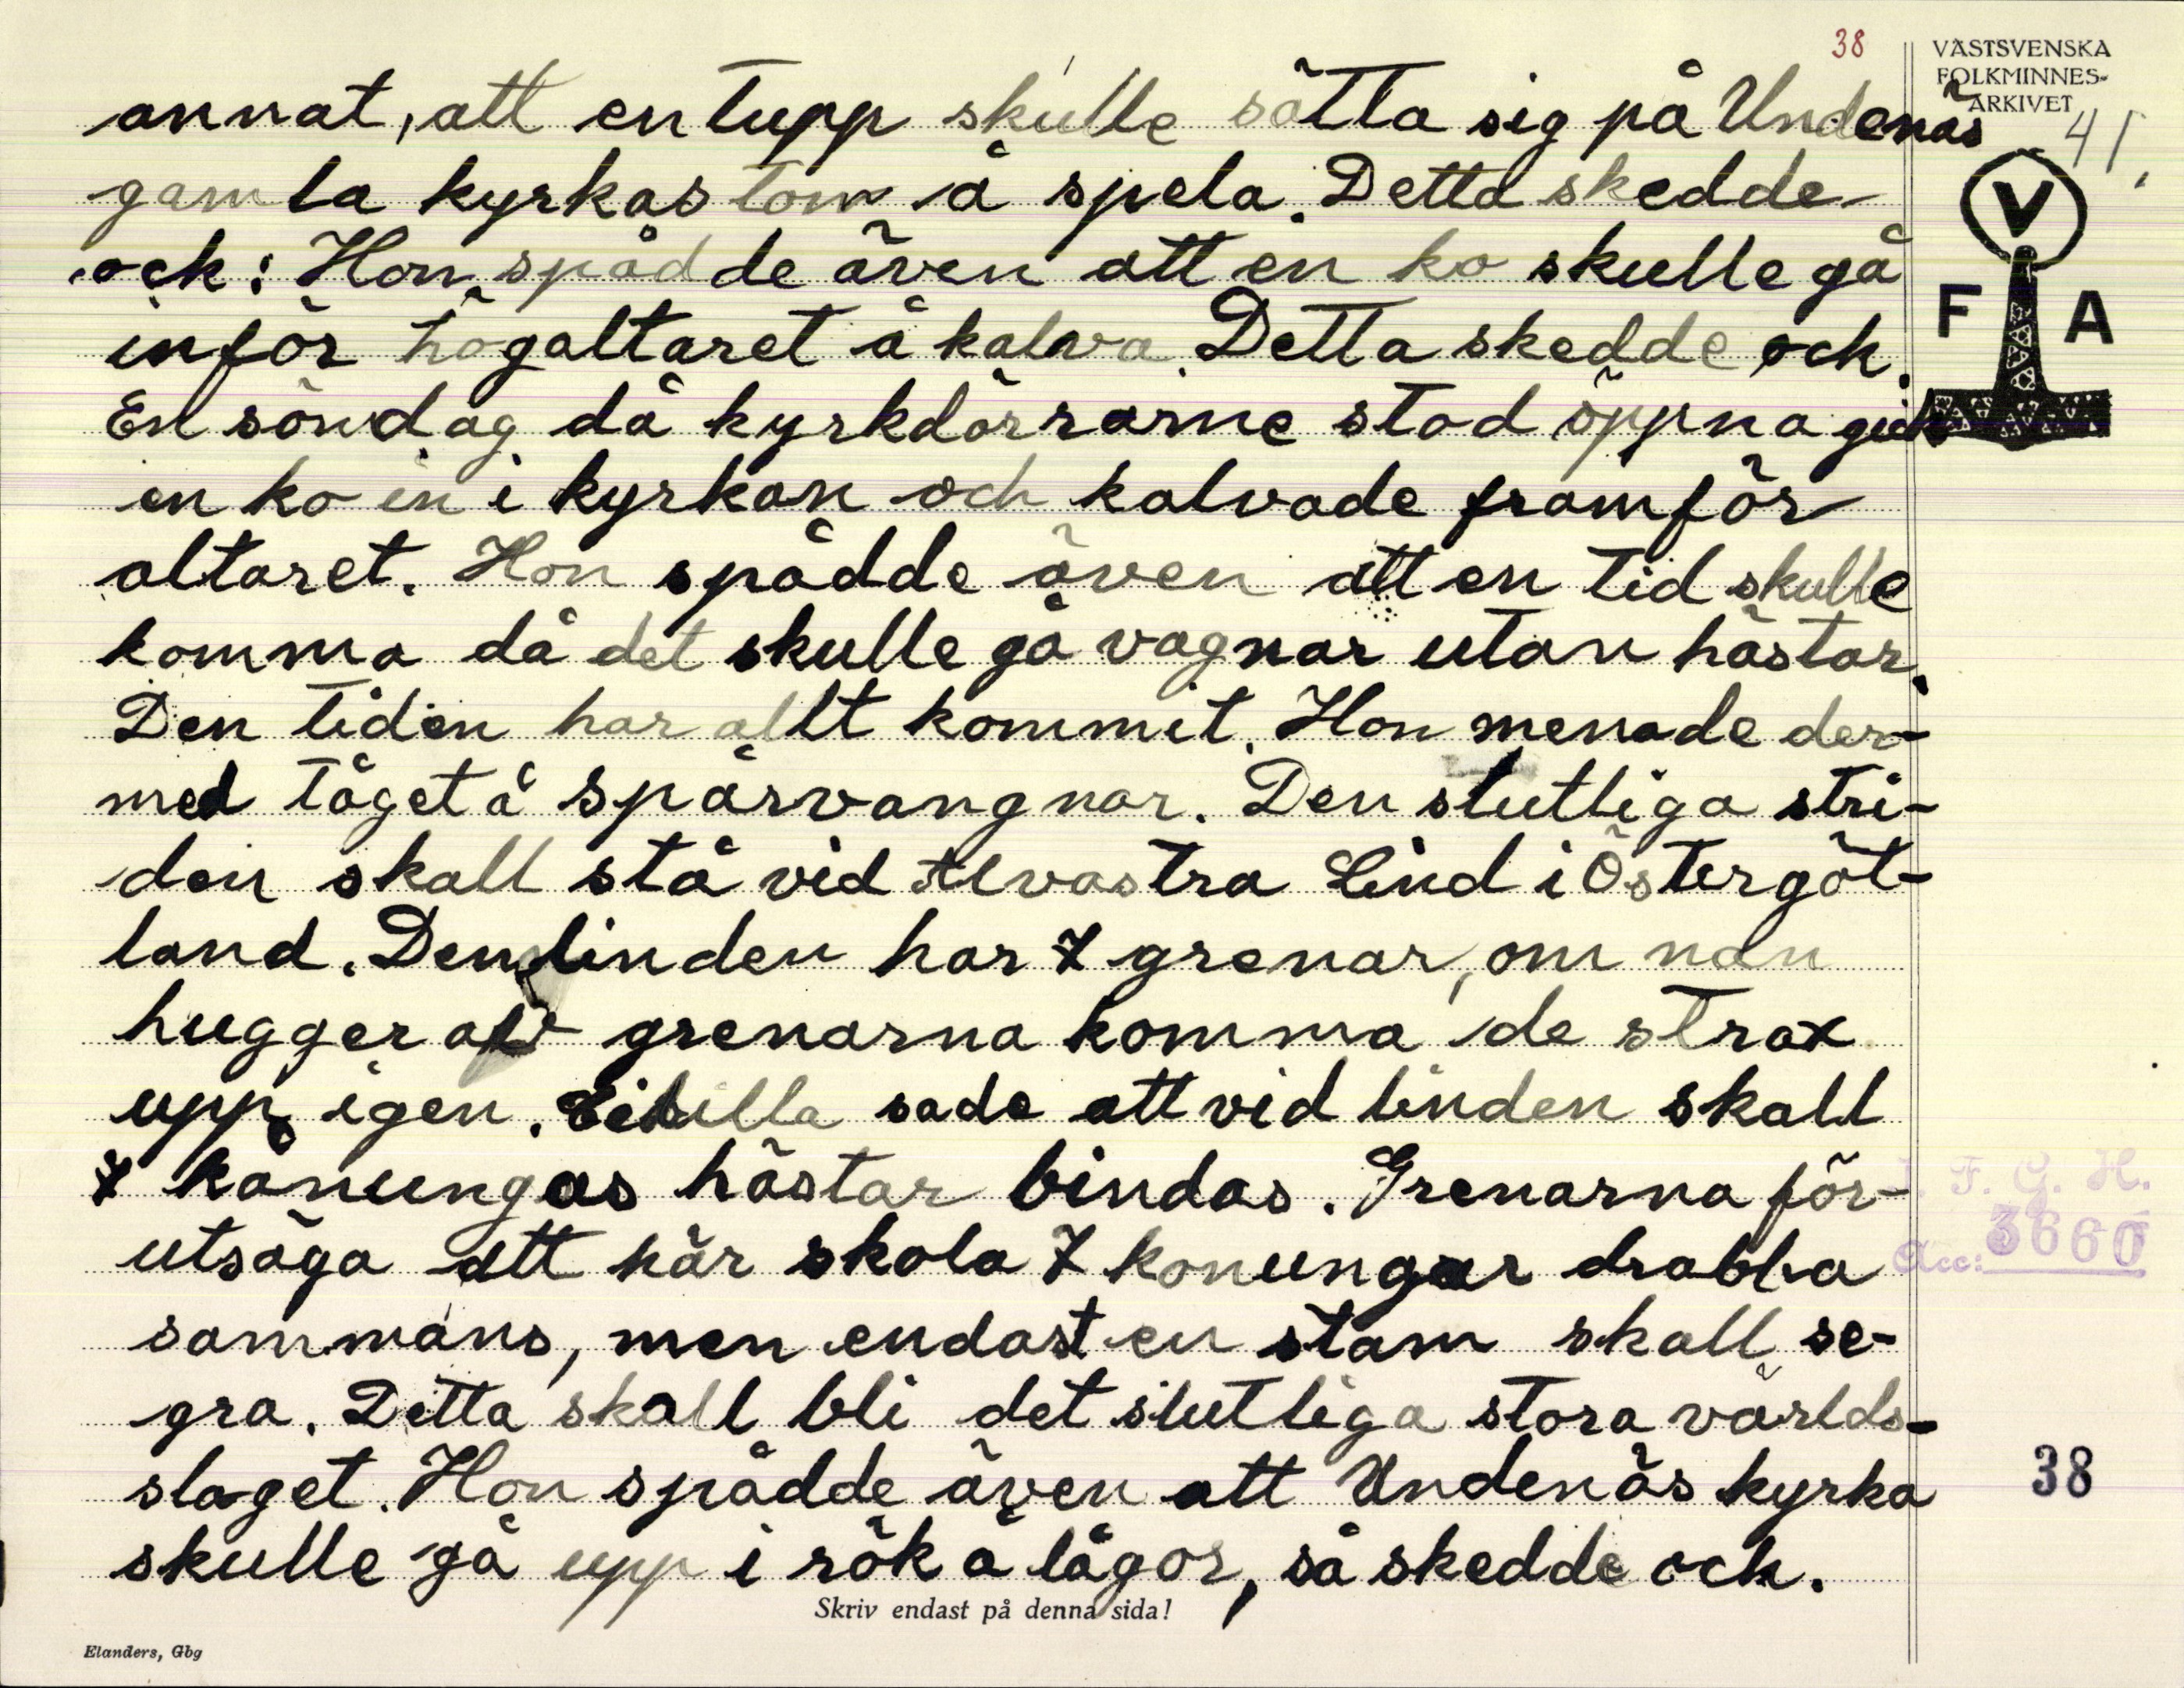 38
VÄSTSVENSKA
FOLKMINNES-
ARKIVET
41,
V
F A
annat, att en tupp skulle sätta sig på Undenäs
gamla kyrkas torn å spela. Detta skedde
ock: Hon spådde även att en ko skulle gå
inför högaltaret å kalva. Detta skedde ock.
En söndag då kyrkdörrarne stod öppna gick
en ko in i kyrkan och kalvade framför
altaret. Hon spådde även att en tid skulle
komma då det skulle gå vagnar utan hästar.
Den tiden har allt kommit. Hon menade der-
med tåget å spårvangnar. Den slutliga stri-
den skall stå vid Alvastra Lind i Östergöt-
land. Den linden har 7 grenar, om man
hugger af grenarna komma de strax
upp igen. Sibilla sade att vid linden skall
7 konungas hästar bindas. Grenarna för-
utsäga att här skola 7 konungar drabba
sammans, men endast en stam skall se-
gra. Detta skall bli det slutliga stora världs-
slaget. Hon spådde även att Undenäs kyrka
skulle gå upp i rök å lågor, så skedde och.
I. F. G. H.
Acc: 3660
38
Skriv endast på denna sida!
Elanders, Gbg